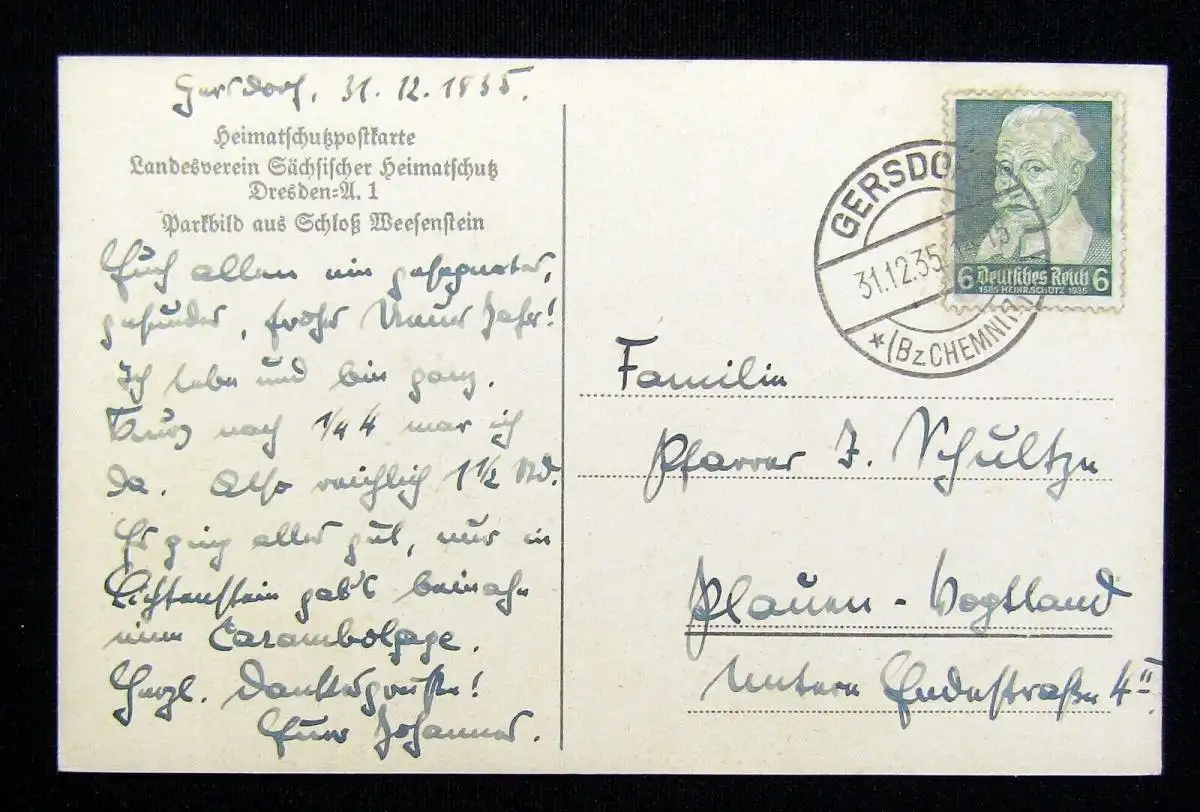 Gersdorf, 31.12.1935.
Heimatschutzpostkarte
Landesverein Sächsischer Heimatschutz
Dresden-A. 1
Parkbild aus Schloß Weesenstein
Euch allen ein gesegnetes,
gesundes, frohes Neues Jahr!
Ich lebe und bin ganz.
Kurz nach 1/4 4 war ich
da. Also reichlich 1 1/2 Std.
Es ging alles gut, nur in
Lichtenstein gab's beinahe
eine Carambolage.
Herzl. Dankesgrüße!
Euer Johannes.
GERSDORF
31.12.35
* (Bz. CHEMNITZ)
6 Deutsches Reich 6
1585 HEINR. SCHÜTZ 1935
Familie
Pfarrer J. Schultze
Plauen - Vogtland
Untere Endestraße 4 II